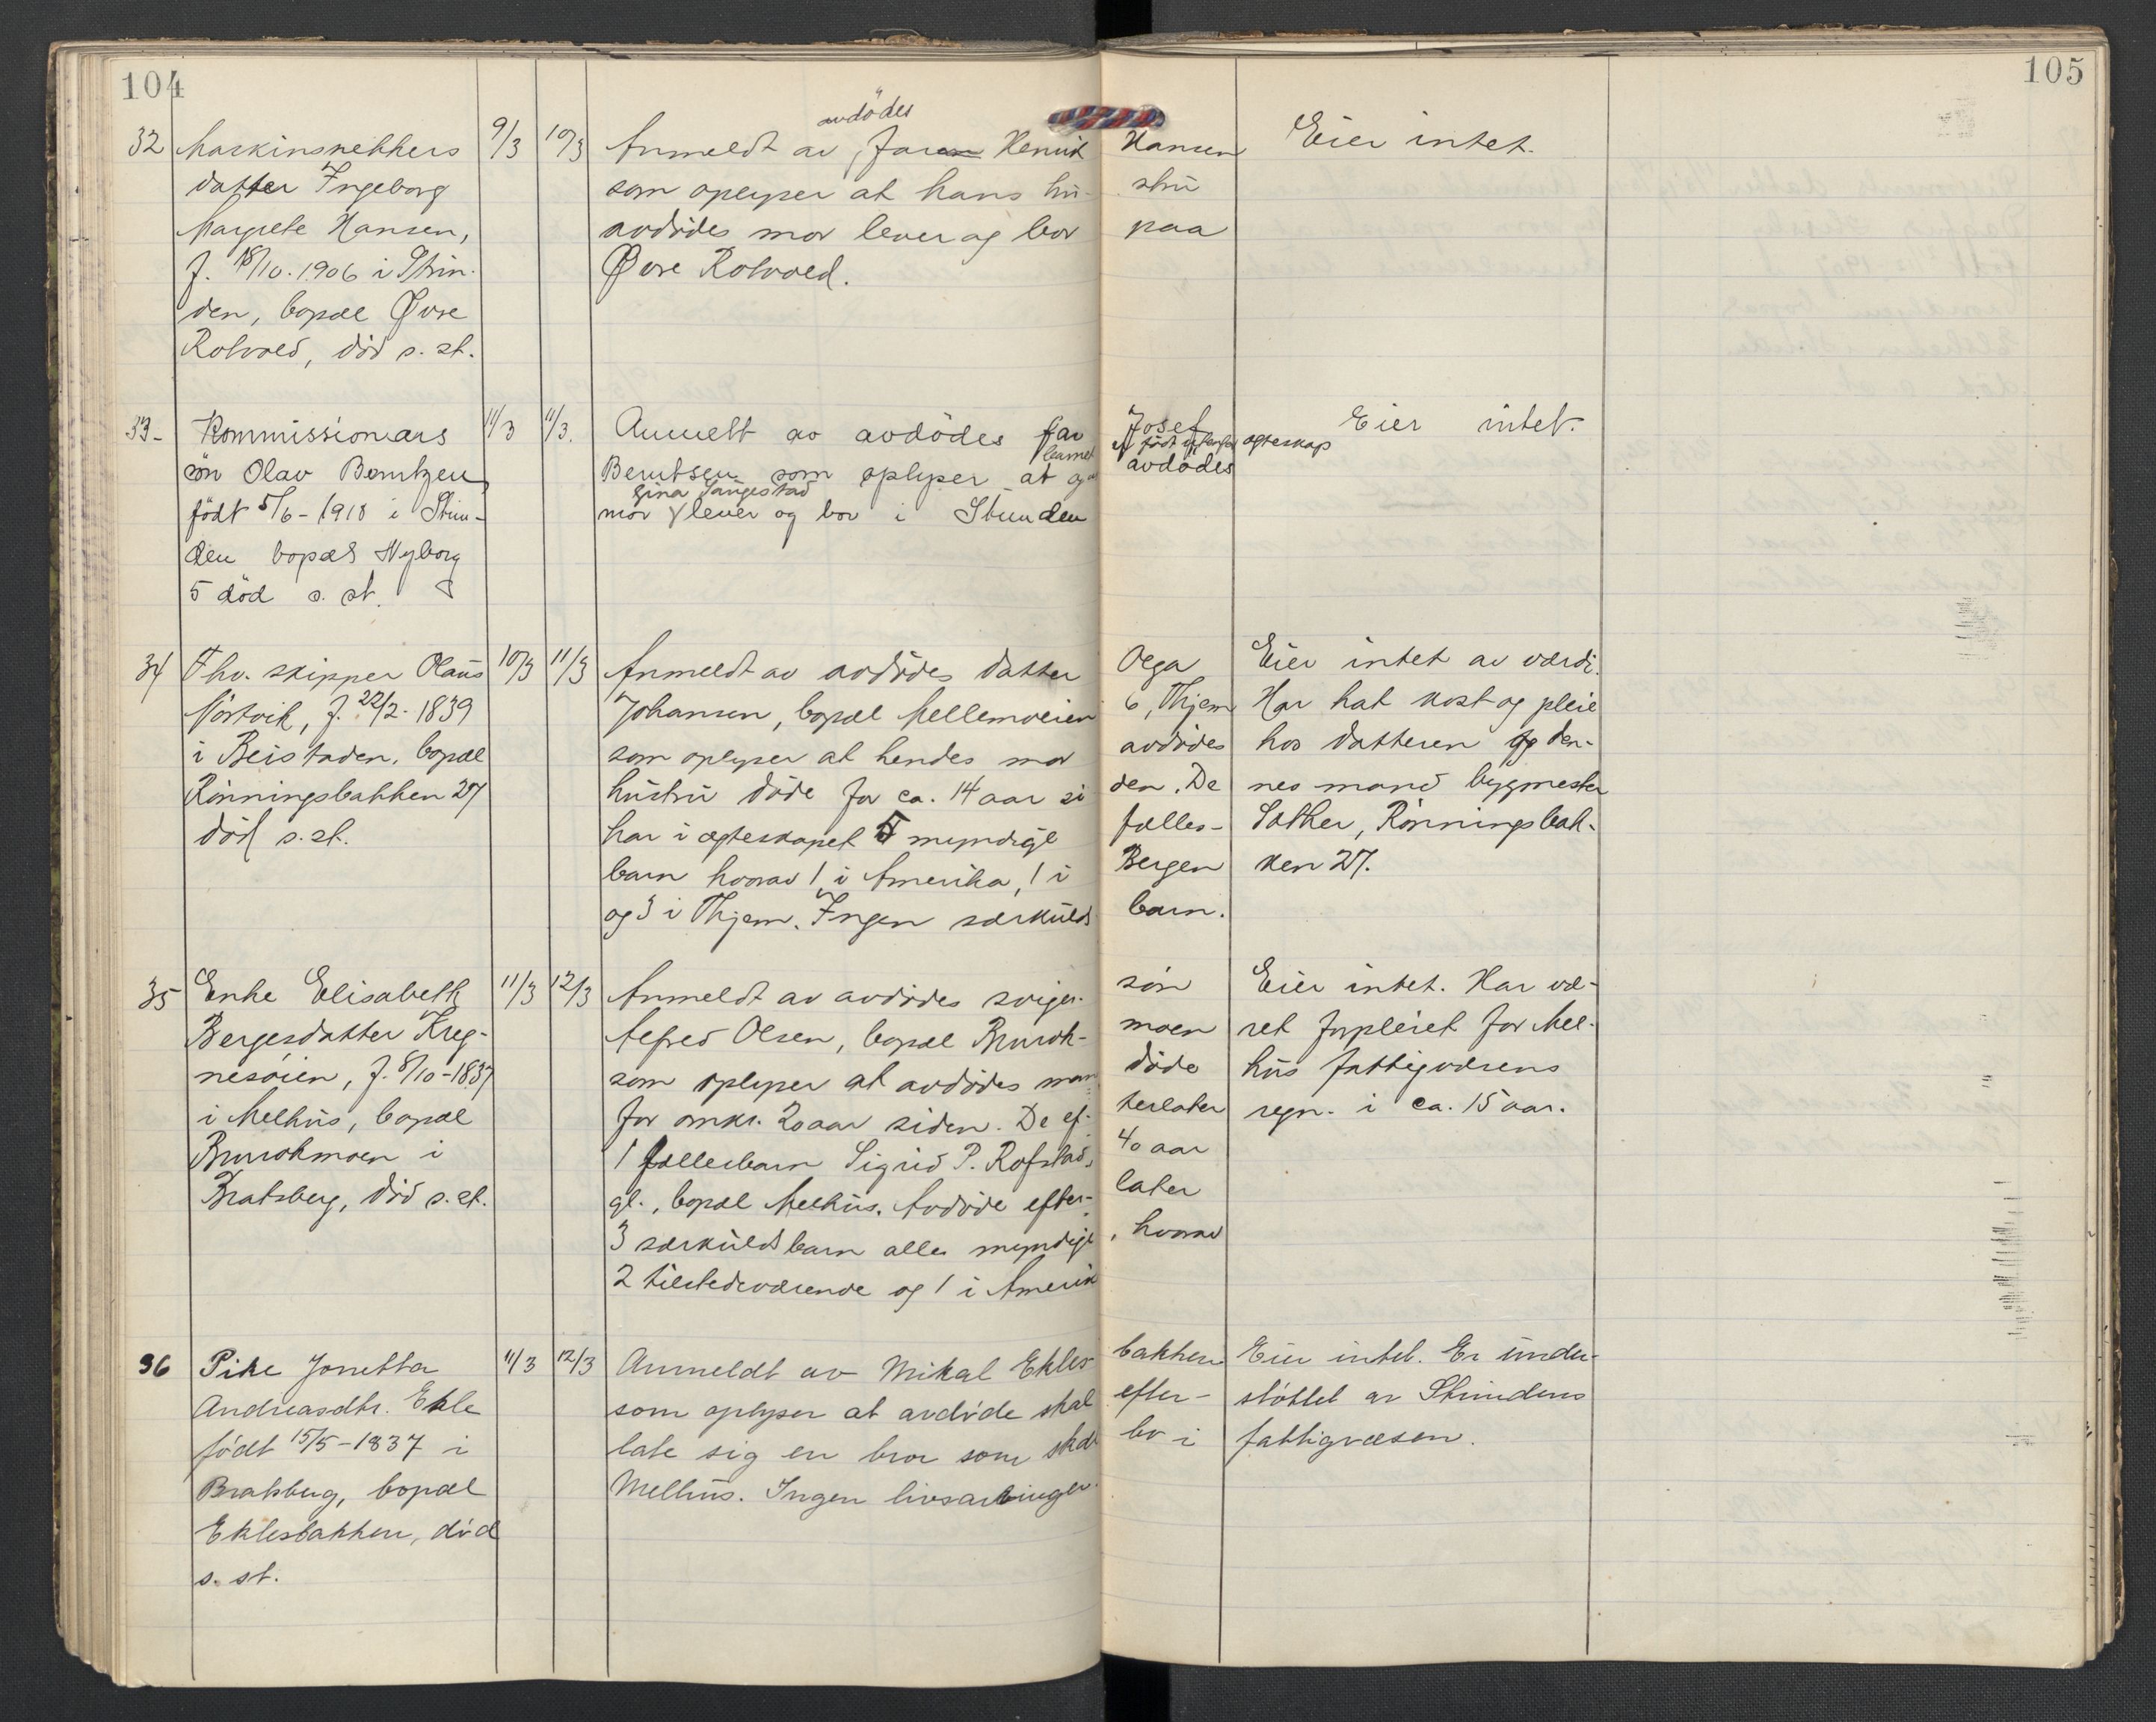 104
105
32 Maskinsnekkers 9/3 10/3 Anmeldt av avdødes far Henrik Hansen Eier intet.
datter Ingeborg som oplyser at hans hu- stru
Margrete Hansen, avdødes mor lever og bor paa
f. 18/10. 1906 i Strin- Øvre Rotvold.
den, bopæl Øvre
Rotvold, død s. st.
33- Kommissionærs 11/3 11/3. Anmelt av avdødes far Josef Eier intet.
barnet er født utenfor ægteskap
søn Olav Berntzen Berntsen som oplyser at og avdødes
Gina Tangestad
født 5/6-1918 i Strin- mor lever og bor i Strinden
den bopæl Nyborg
5 død s. st.
34 Fhv. skipper Olaus 10/3 11/3 Anmeldt av avdødes datter Olga Eier intet av værdi.
Nøstvik, f. 22/2-1839 Johansen, bopæl Mellemveien 6, Thjem Har hat kost og pleie
i Beistaden, bopæl som oplyser at hendes mor avdødes hos datteren og den-
Rønningsbakken 27 hustru døde for ca. 14 aar si den. De nes mand bygmester
død s. st. har i ægteskapet 5 myndige fælles- Sæther, Rønningsbak-
barn hvorav 1 i Amerika, 1 i Bergen ken 27.
og 3 i Thjem. Ingen særkulds barn.
35 Enke Elisabeth 11/3 12/3 Anmeldt av avdødes sviger- søn Eier intet. Har væ-
Bergesdatter Kreg- Alfred Olsen, bopæl Brurok- moen ret forpleiet for Mel-
nesøien, f. 8/10-1837 som oplyser at avdødes man døde hus fattigvæsens
i Melhus, bopæl for omkr. 20 aar siden. De ef- terlater regn. i ca. 15 aar.
Brurokmoen i 1 fællesbarn Sigrid P. Rofstad, 40 aar
Bratsberg, død s. st. gl., bopæl Melhus. Avdøde efter- later
3 særkuldsbarn alle myndige, hvorav
2 tilstedeværende og 1 i Amerik
36 Pike Jonetta 11/3 12/3 Anmeldt av Mikal Ekles- bakken Eier intet. Er under-
Andreasdtr. Ekle som oplyser at avdøde skal efter- støttet av Strindens
født 15/5-1837 i late sig en bror som skal bo i fattigvæsen.
Bratsberg, bopæl Melhus. Ingen livsarvinger.
Eklesbakken, død
s. st.